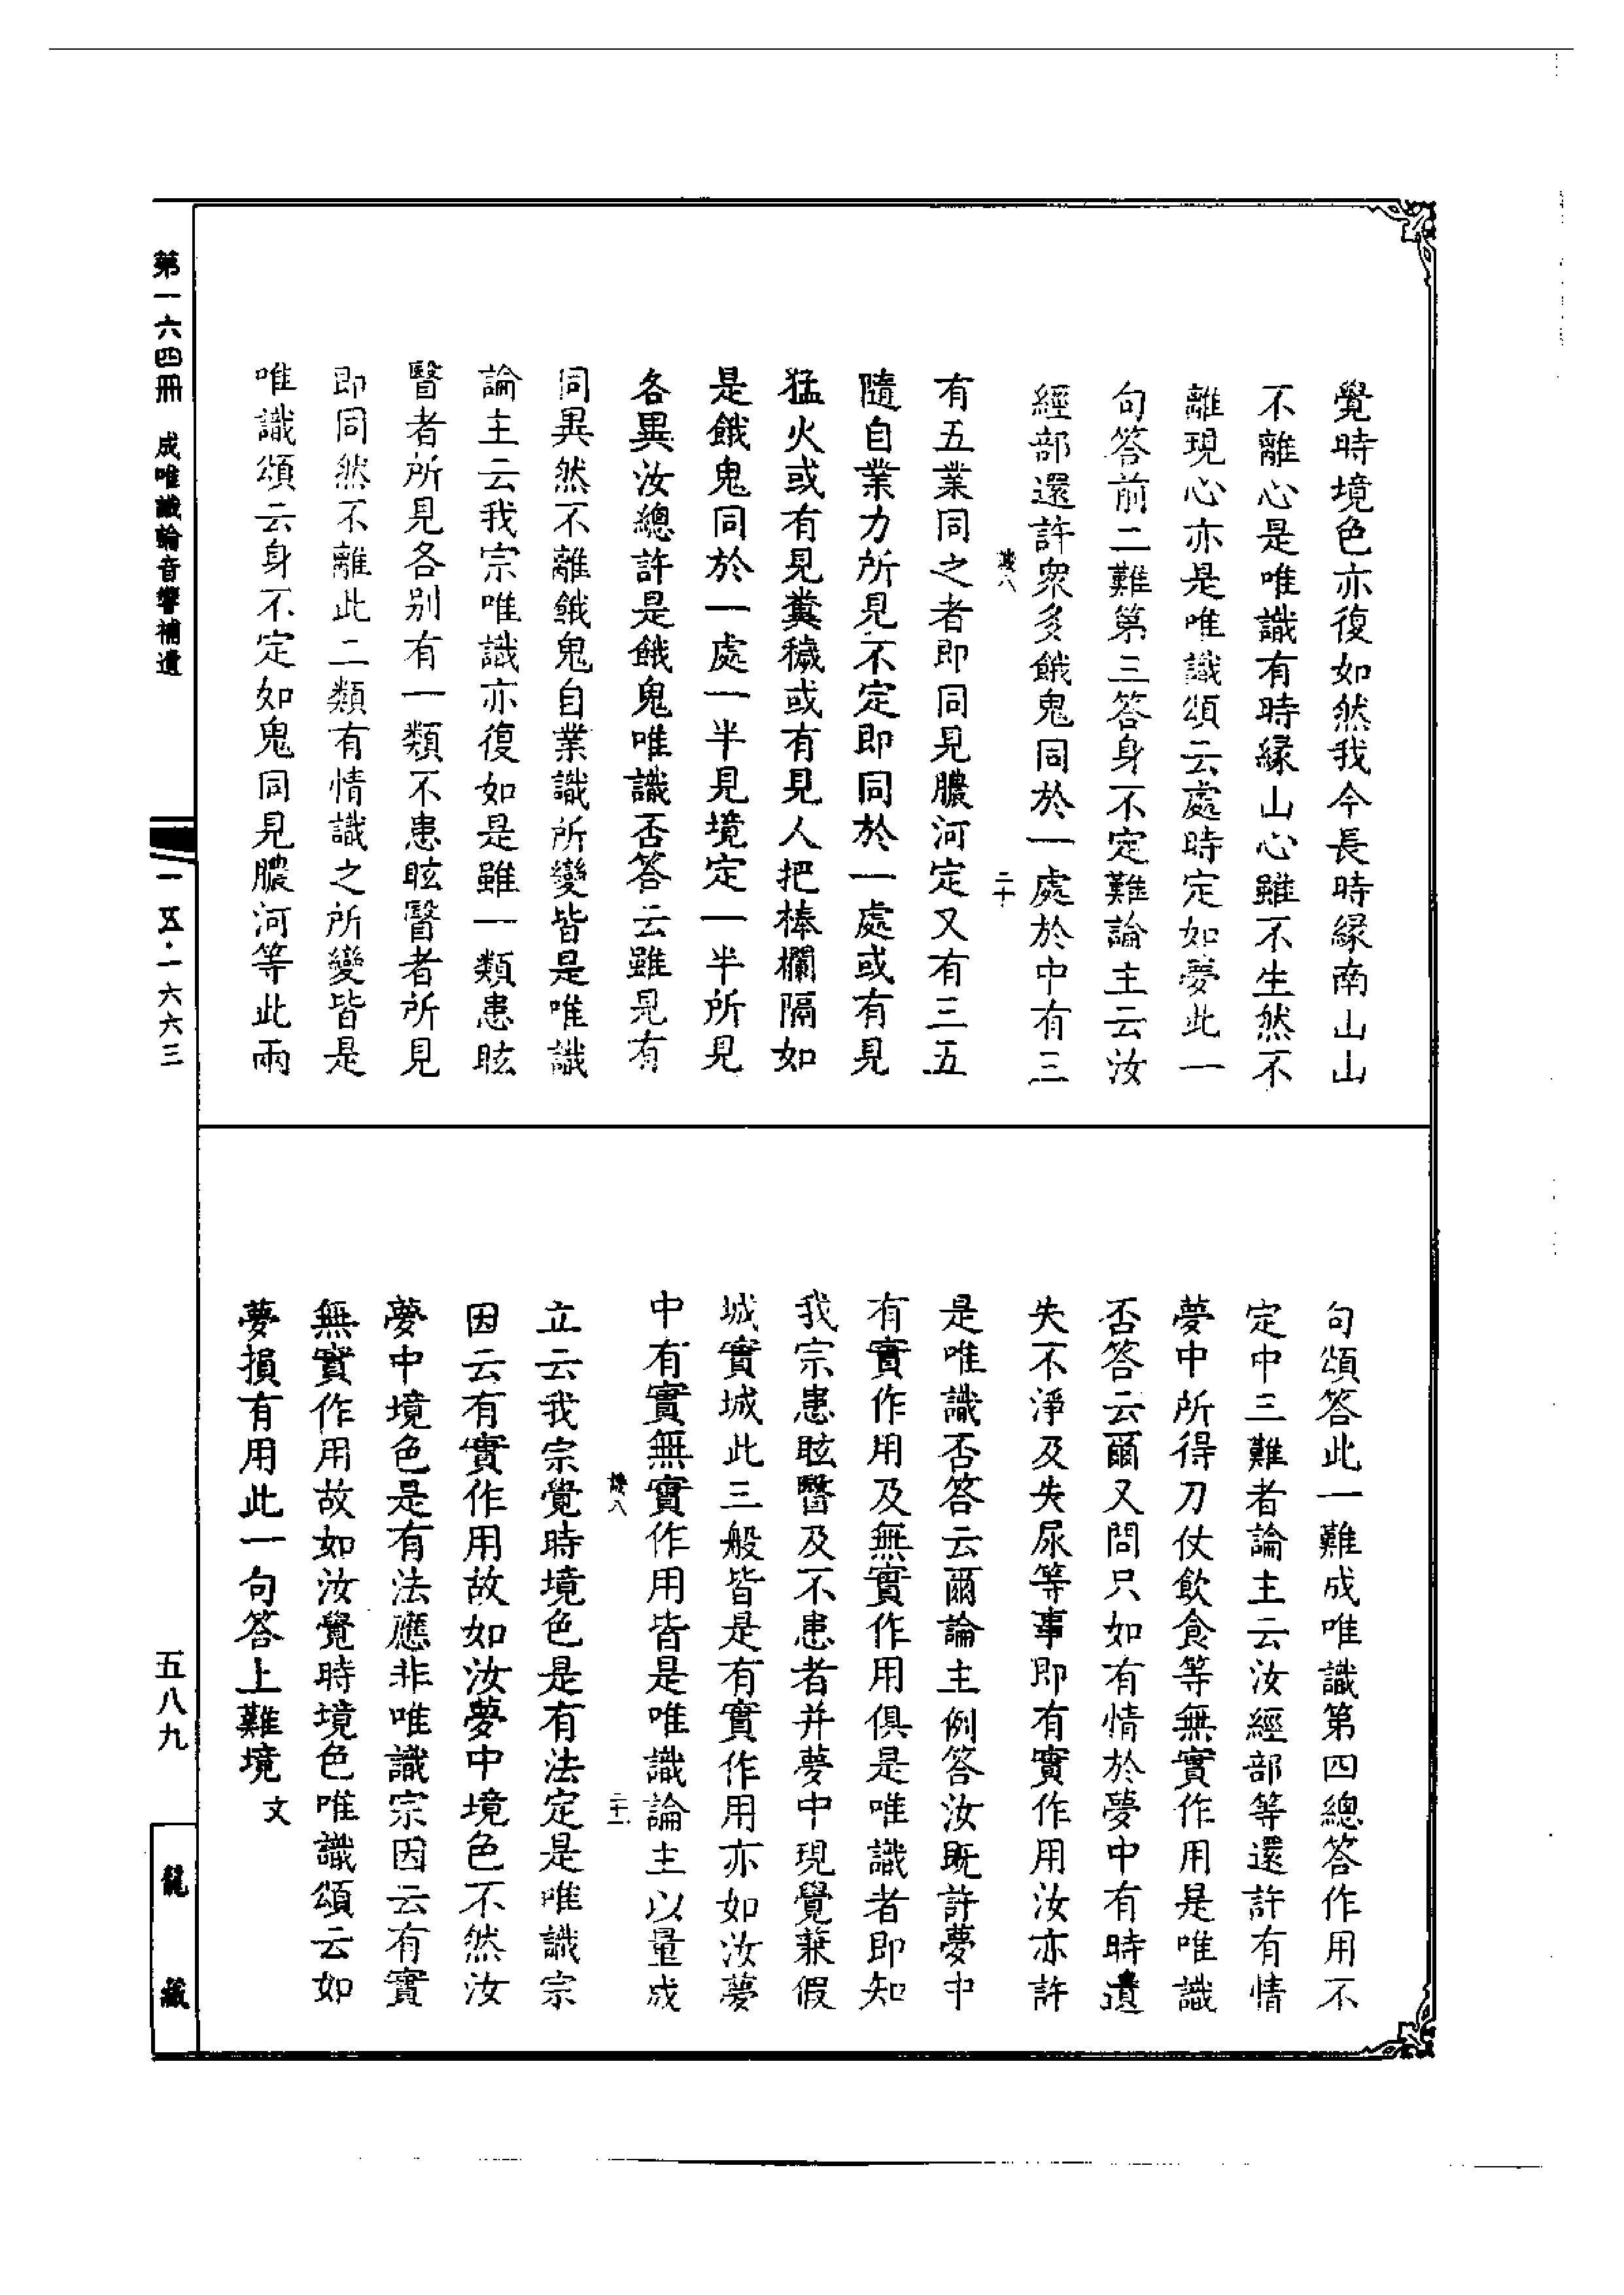 覺時境色亦復如然我今長時緣南山山
不離心是唯識有時緣山心雖不生然不
離現心亦是唯識頌云處時定如夢此一
句答前二難第三答身不定難論主云汝
經部還許眾多餓鬼同於一處於中有三
二十
有五業同之者即同見膿河定又有三五
隨自業力所見不定即同於一處或有見
猛火或有見糞穢或有見人把棒欄隔如
是餓鬼同於一處一半見境定一半所見
各異汝總許是餓鬼唯識否答云雖見有
同異然不離餓鬼自業識所變皆是唯識
論主云我宗唯識亦復如是雖一類患眩
瞖者所見各別有一類不患眩瞖者所見
即同然不離此二類有情識之所變皆是
唯識頌云身不定如鬼同見膿河等此兩
句頌答此一難成唯識第四總答作用不
定中三難者論主云汝經部等還許有情
夢中所得刀仗飲食等無實作用是唯識
否答云爾又問只如有情於夢中有時遺
失不淨及失尿等事即有實作用汝亦許
是唯識否答云爾論主例答汝既許夢中
有實作用及無實作用俱是唯識者即知
我宗患眩瞖及不患者并夢中現覺兼假
城實城此三般皆是有實作用亦如汝夢
中有實無實作用皆是唯識論主以量成
二十一
立云我宗覺時境色是有法定是唯識宗
因云有實作用故如汝夢中境色不然汝
夢中境色是有法應非唯識宗因云有實
無實作用故如汝覺時境色唯識頌云如
夢損有用此一句答上難境 文
第一六四冊 成唯識論音響補遺
一五·一六六三
五八九
龍藏